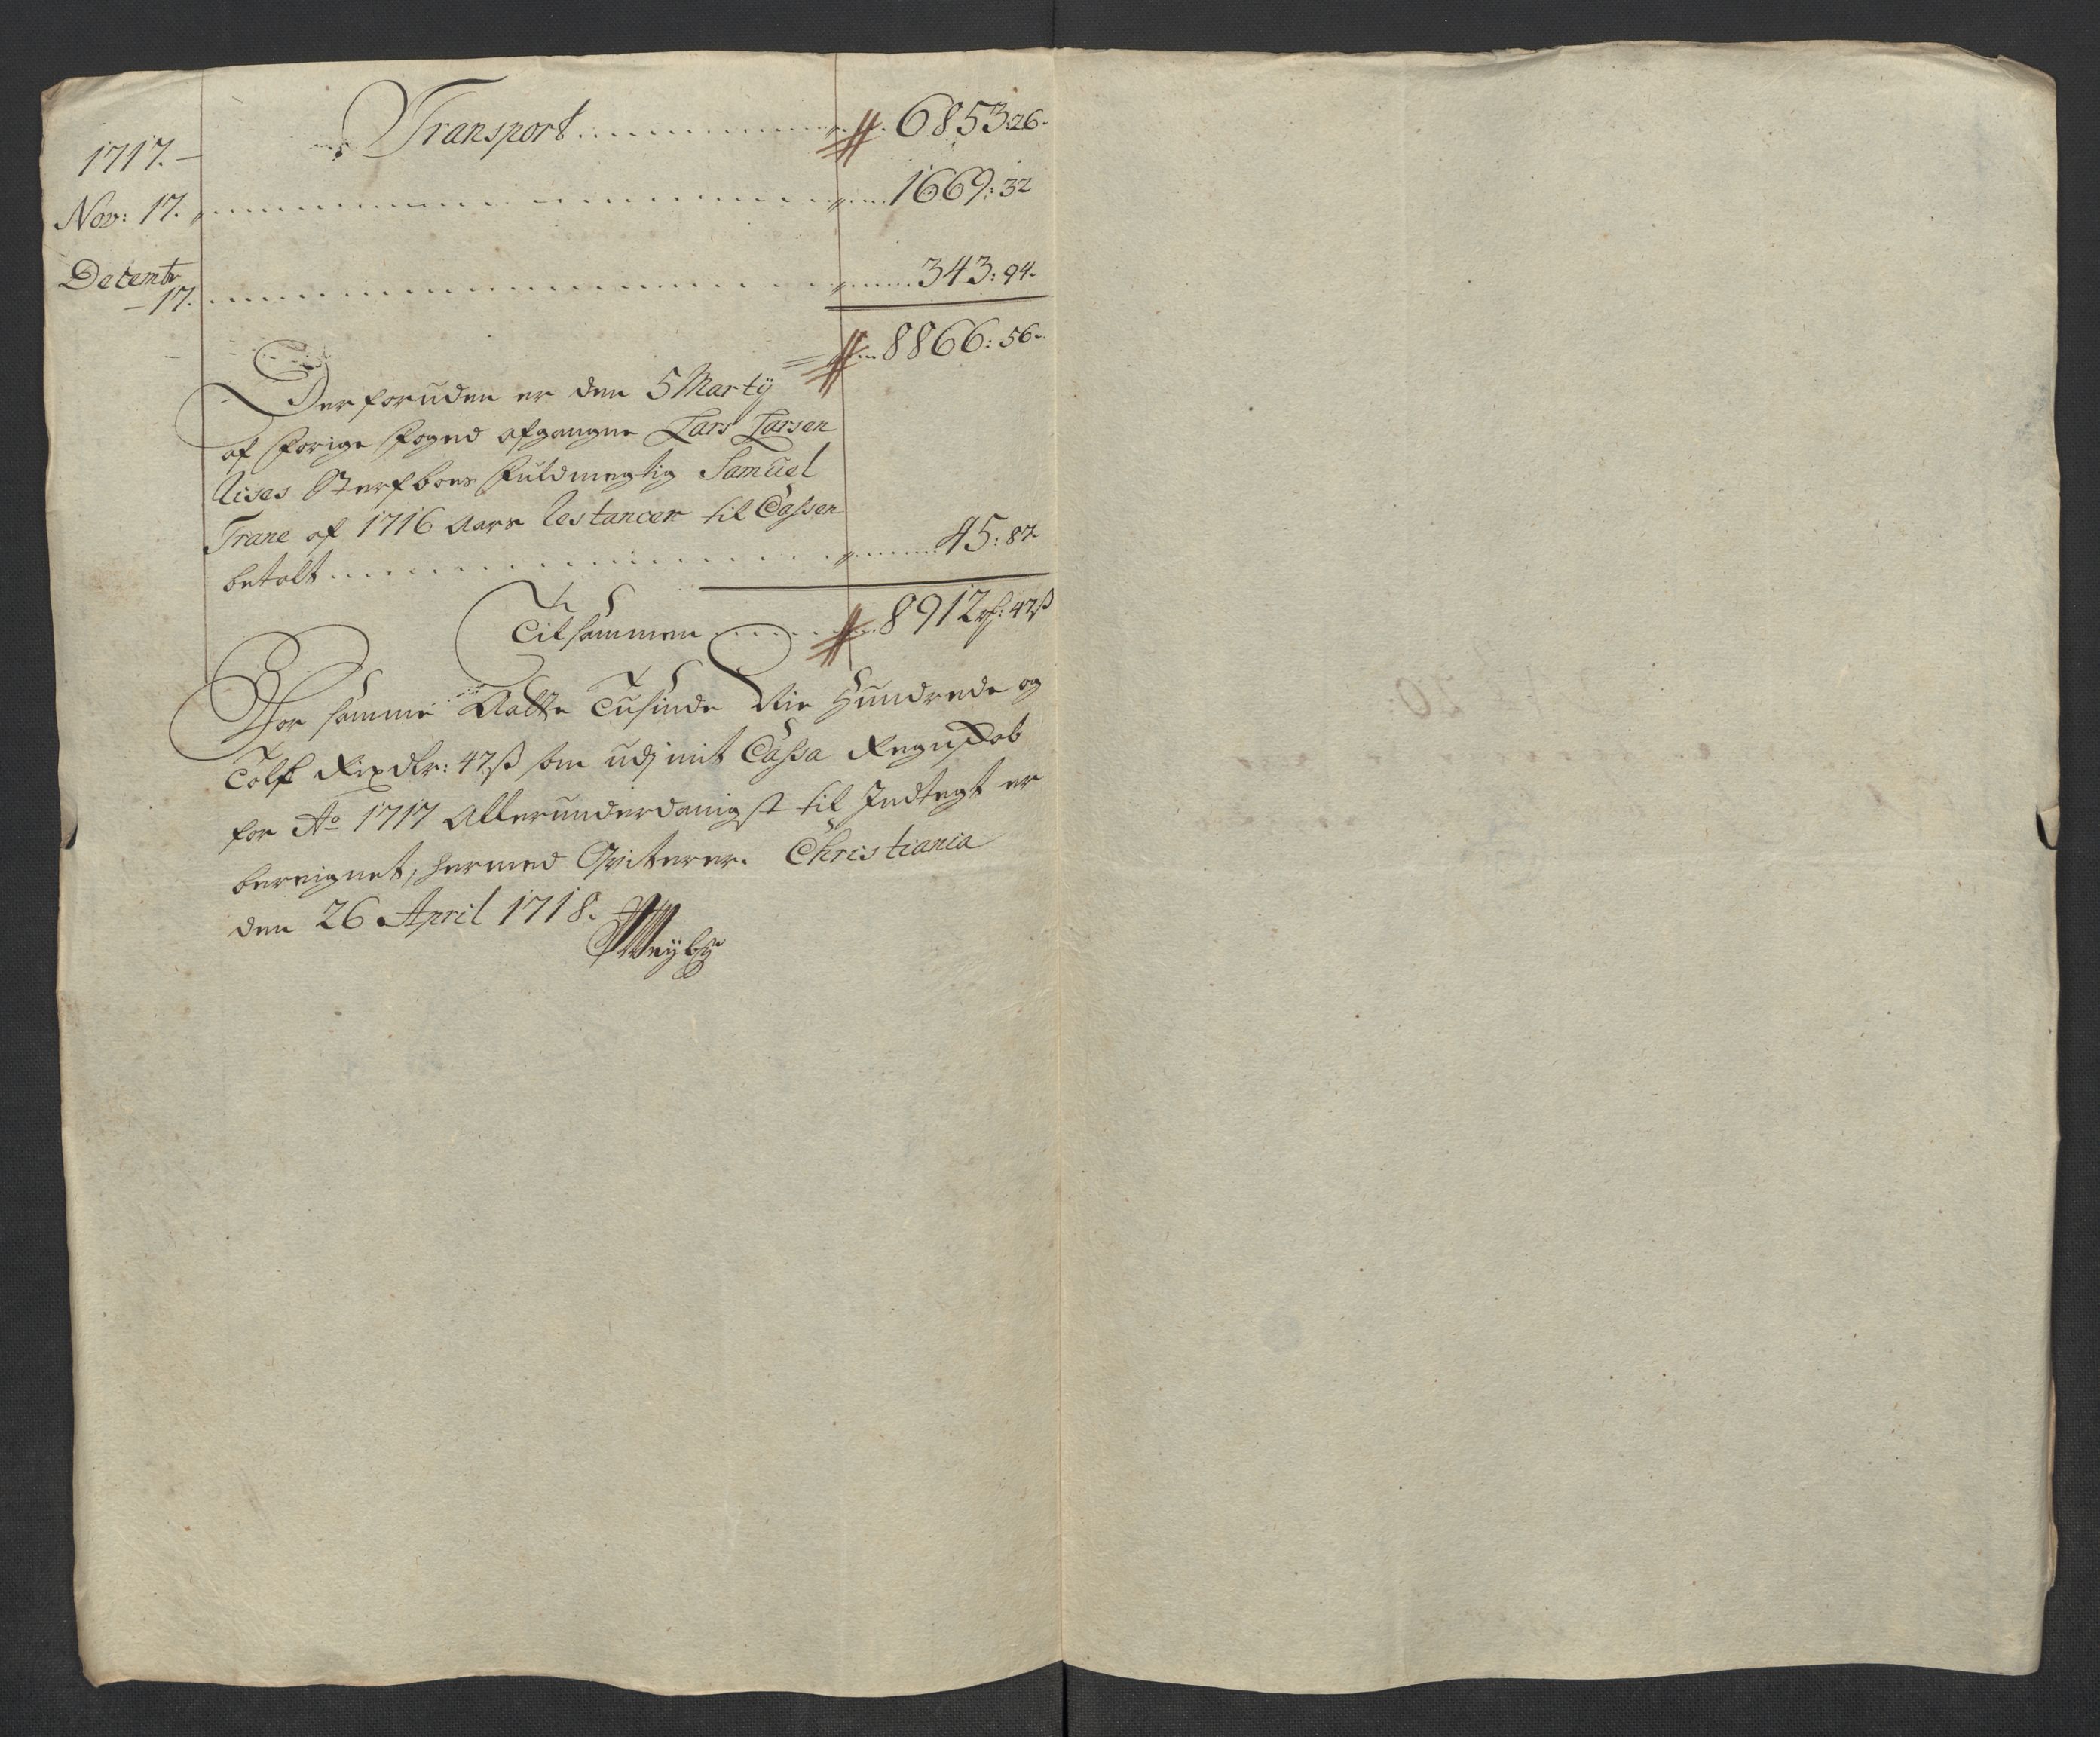 Transport . . . 6853:26.
1717.
Nov: 17. . . . 1669:32
Decembr
17. . . . 343:94.
8866:56.
Der foruden er den 5 Martÿ
af forige foged afgangne Lars Larsen
Rises Sterfboes fuldmegtig Samuel
Trane af 1716 Aars Restancer til Cassen
betalt . . . 45:87.
Tilsammen . . . 8912 rd: 47 ß
For samme Aatte Tusinde Nie Hundrede og
Tolf Rixdlr: 47 ß som udj mit Cassa Regnskab
for Ao 1717 Allerunderdanigst til Indtegt er
bereignet, hermed Qviterer. Christiania
den 26 April 1718.